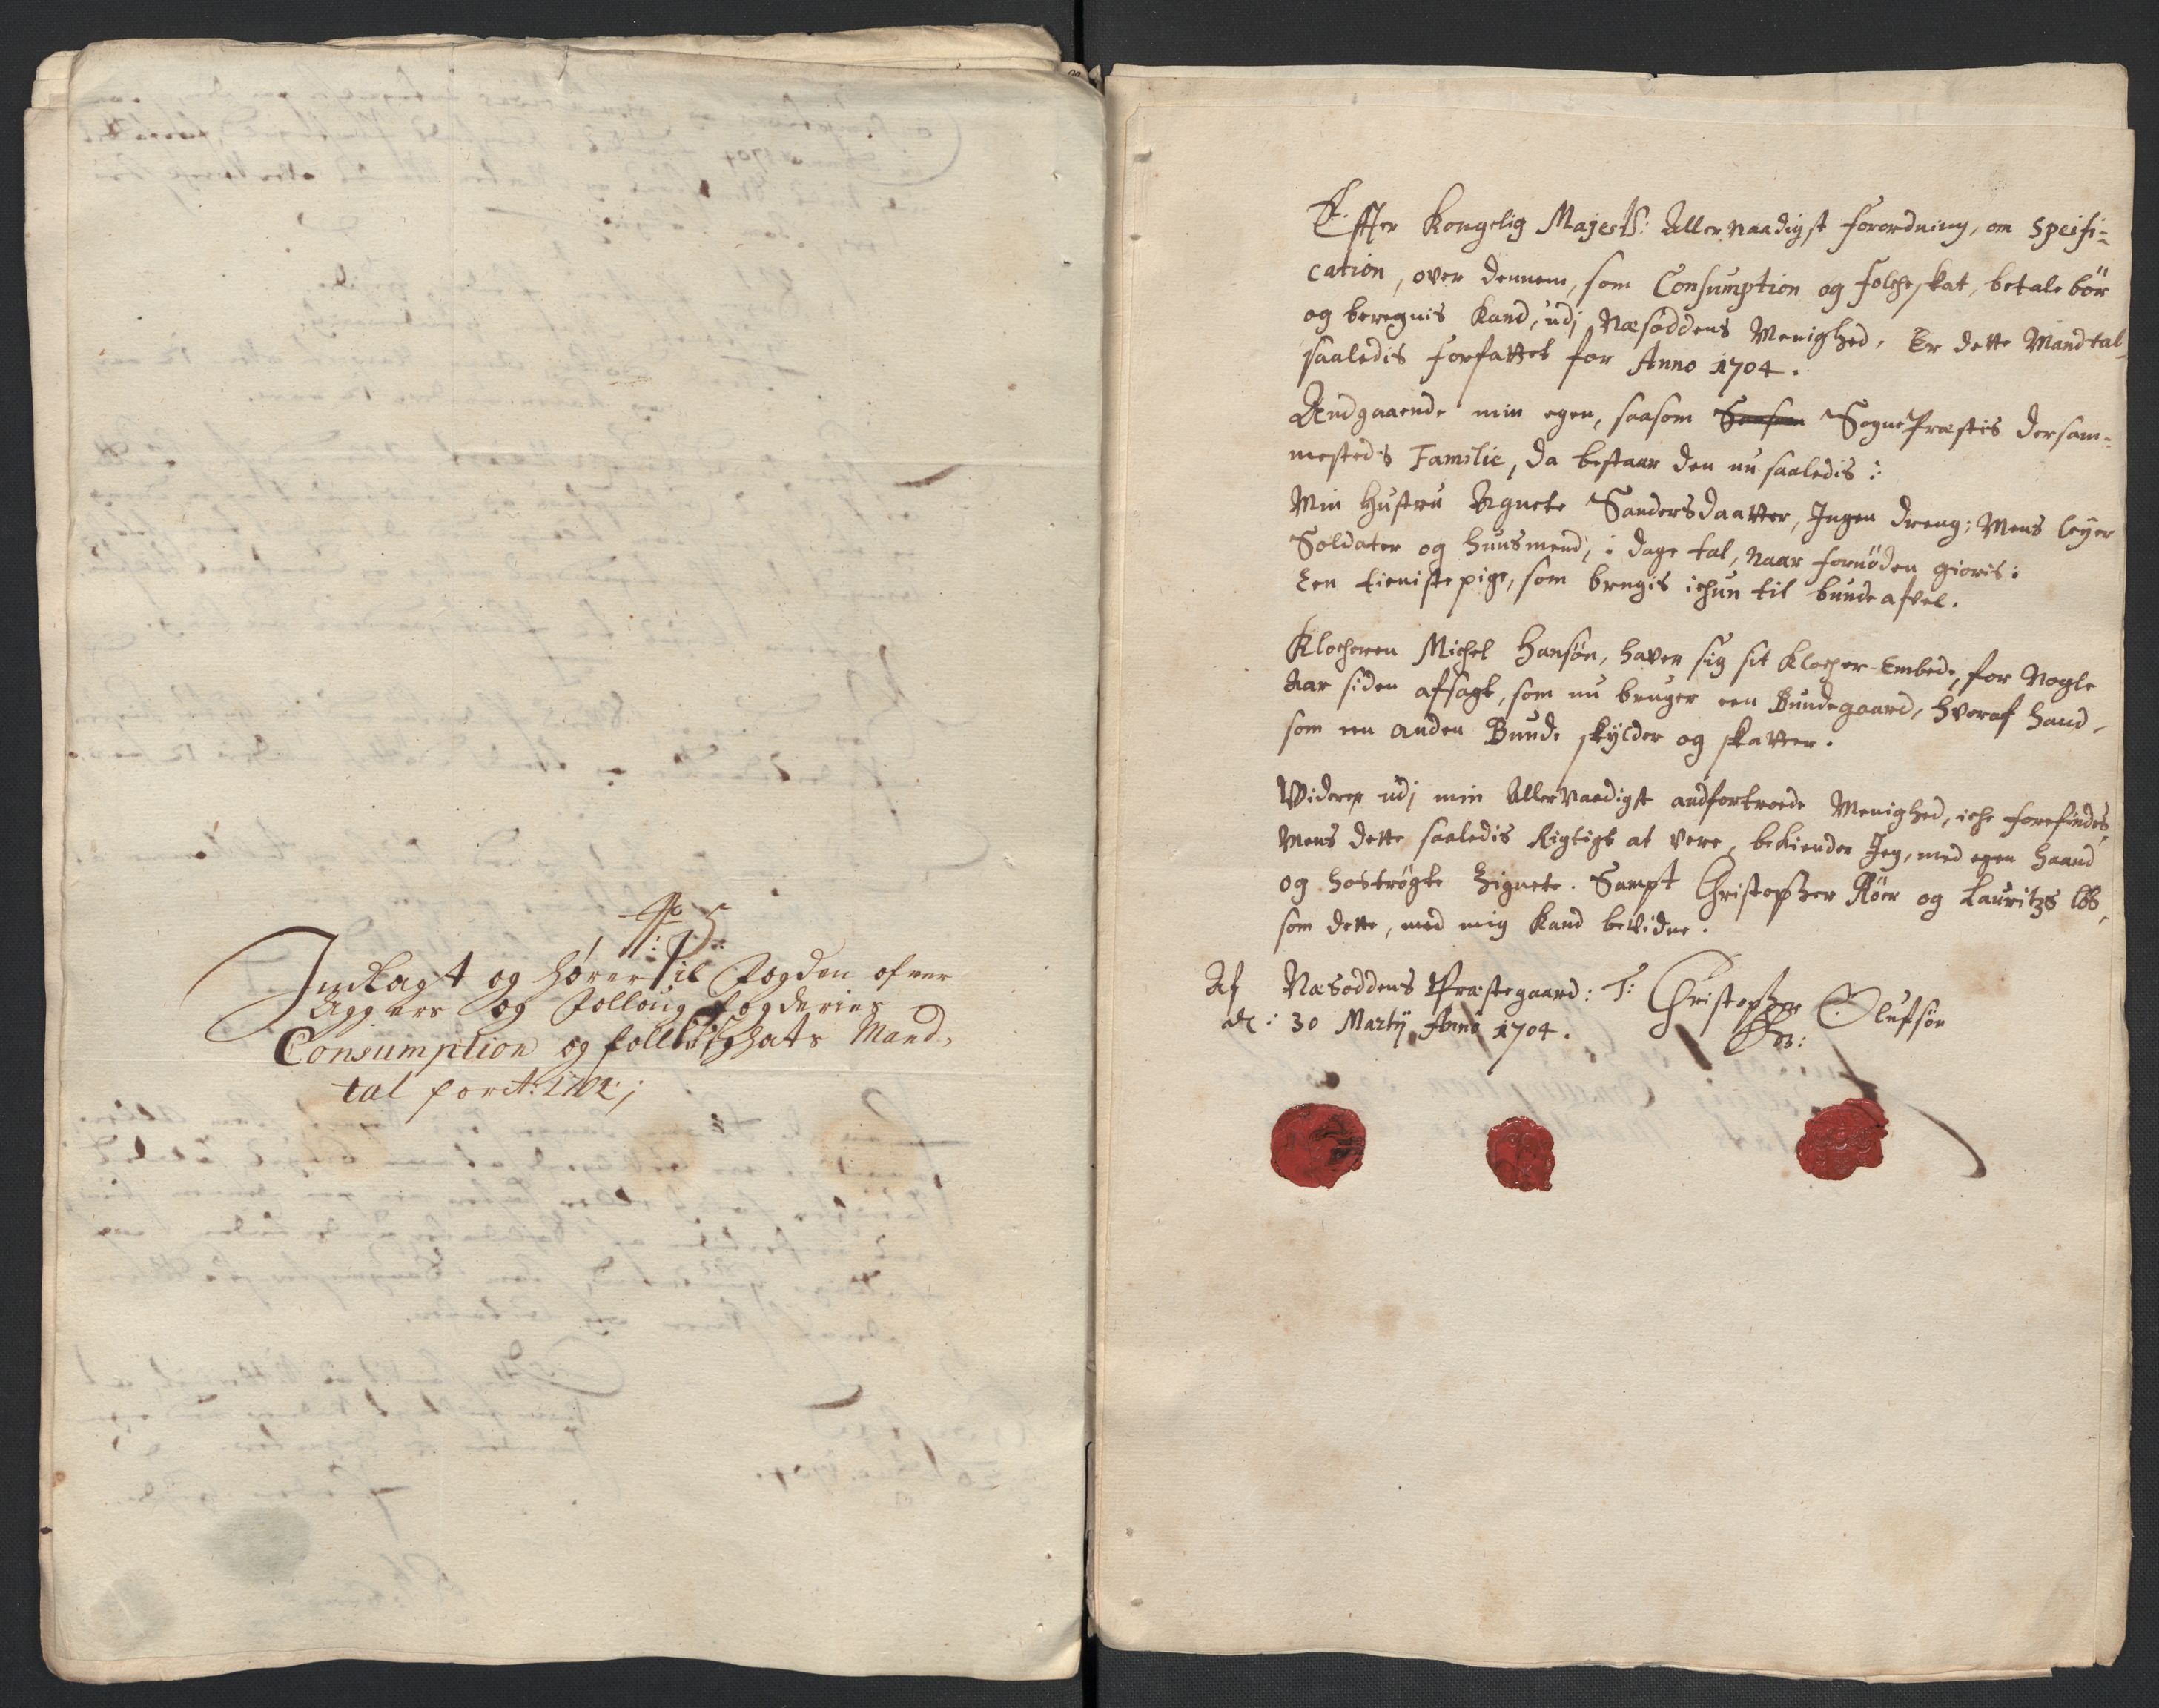 No 5
Indlagt og hører til Fogden ofver
Aggers og Folloug Fogderies
Consumption og folcheskats Mand,
tal for A: 1704;
Effter Kongelig Majestß: Allernaadigst forordning, om Speifi-
cation, over dennem, som Consumption og folcheskat, betale bör
og beregnis kand, udj Næsoddens Menighed, Er dette Mandtal
saaledis forfattet for Anno 1704.
Andgaaende min egen, saasom SognePræstis dersam-
mesteds Familie, da bestaar den nu saaledis:
Min Hustru Agnete Sandersdaatter, Ingen dreng; Mens leyer
Soldater og Huusmend, i dage tal, naar fornöden giöris:
Een tieniste pige, som brugis ichun til bunde afvel.
Klocheren Michel Hansön, haver sig sit Klocher-Embede, for Nogle
Aar siden afsagt, som nu bruger een Bundegaard, hvoraf hand,
som een anden Bunde skylder og skatter.
Widerre udj min Allernaadigst andfortroede Menighed, iche forefindes,
Mens dette saaledis Rigtigt at vere, bekiender Jeg, med egen haand
og hoströgte Zignete. Sampt Christopher Röer og Lauritzs
som dette, med mig kand bevidne.
Af Næsoddens Præstegaard: Christopher Olufsön
dn: 30 Martij Anno 1704.